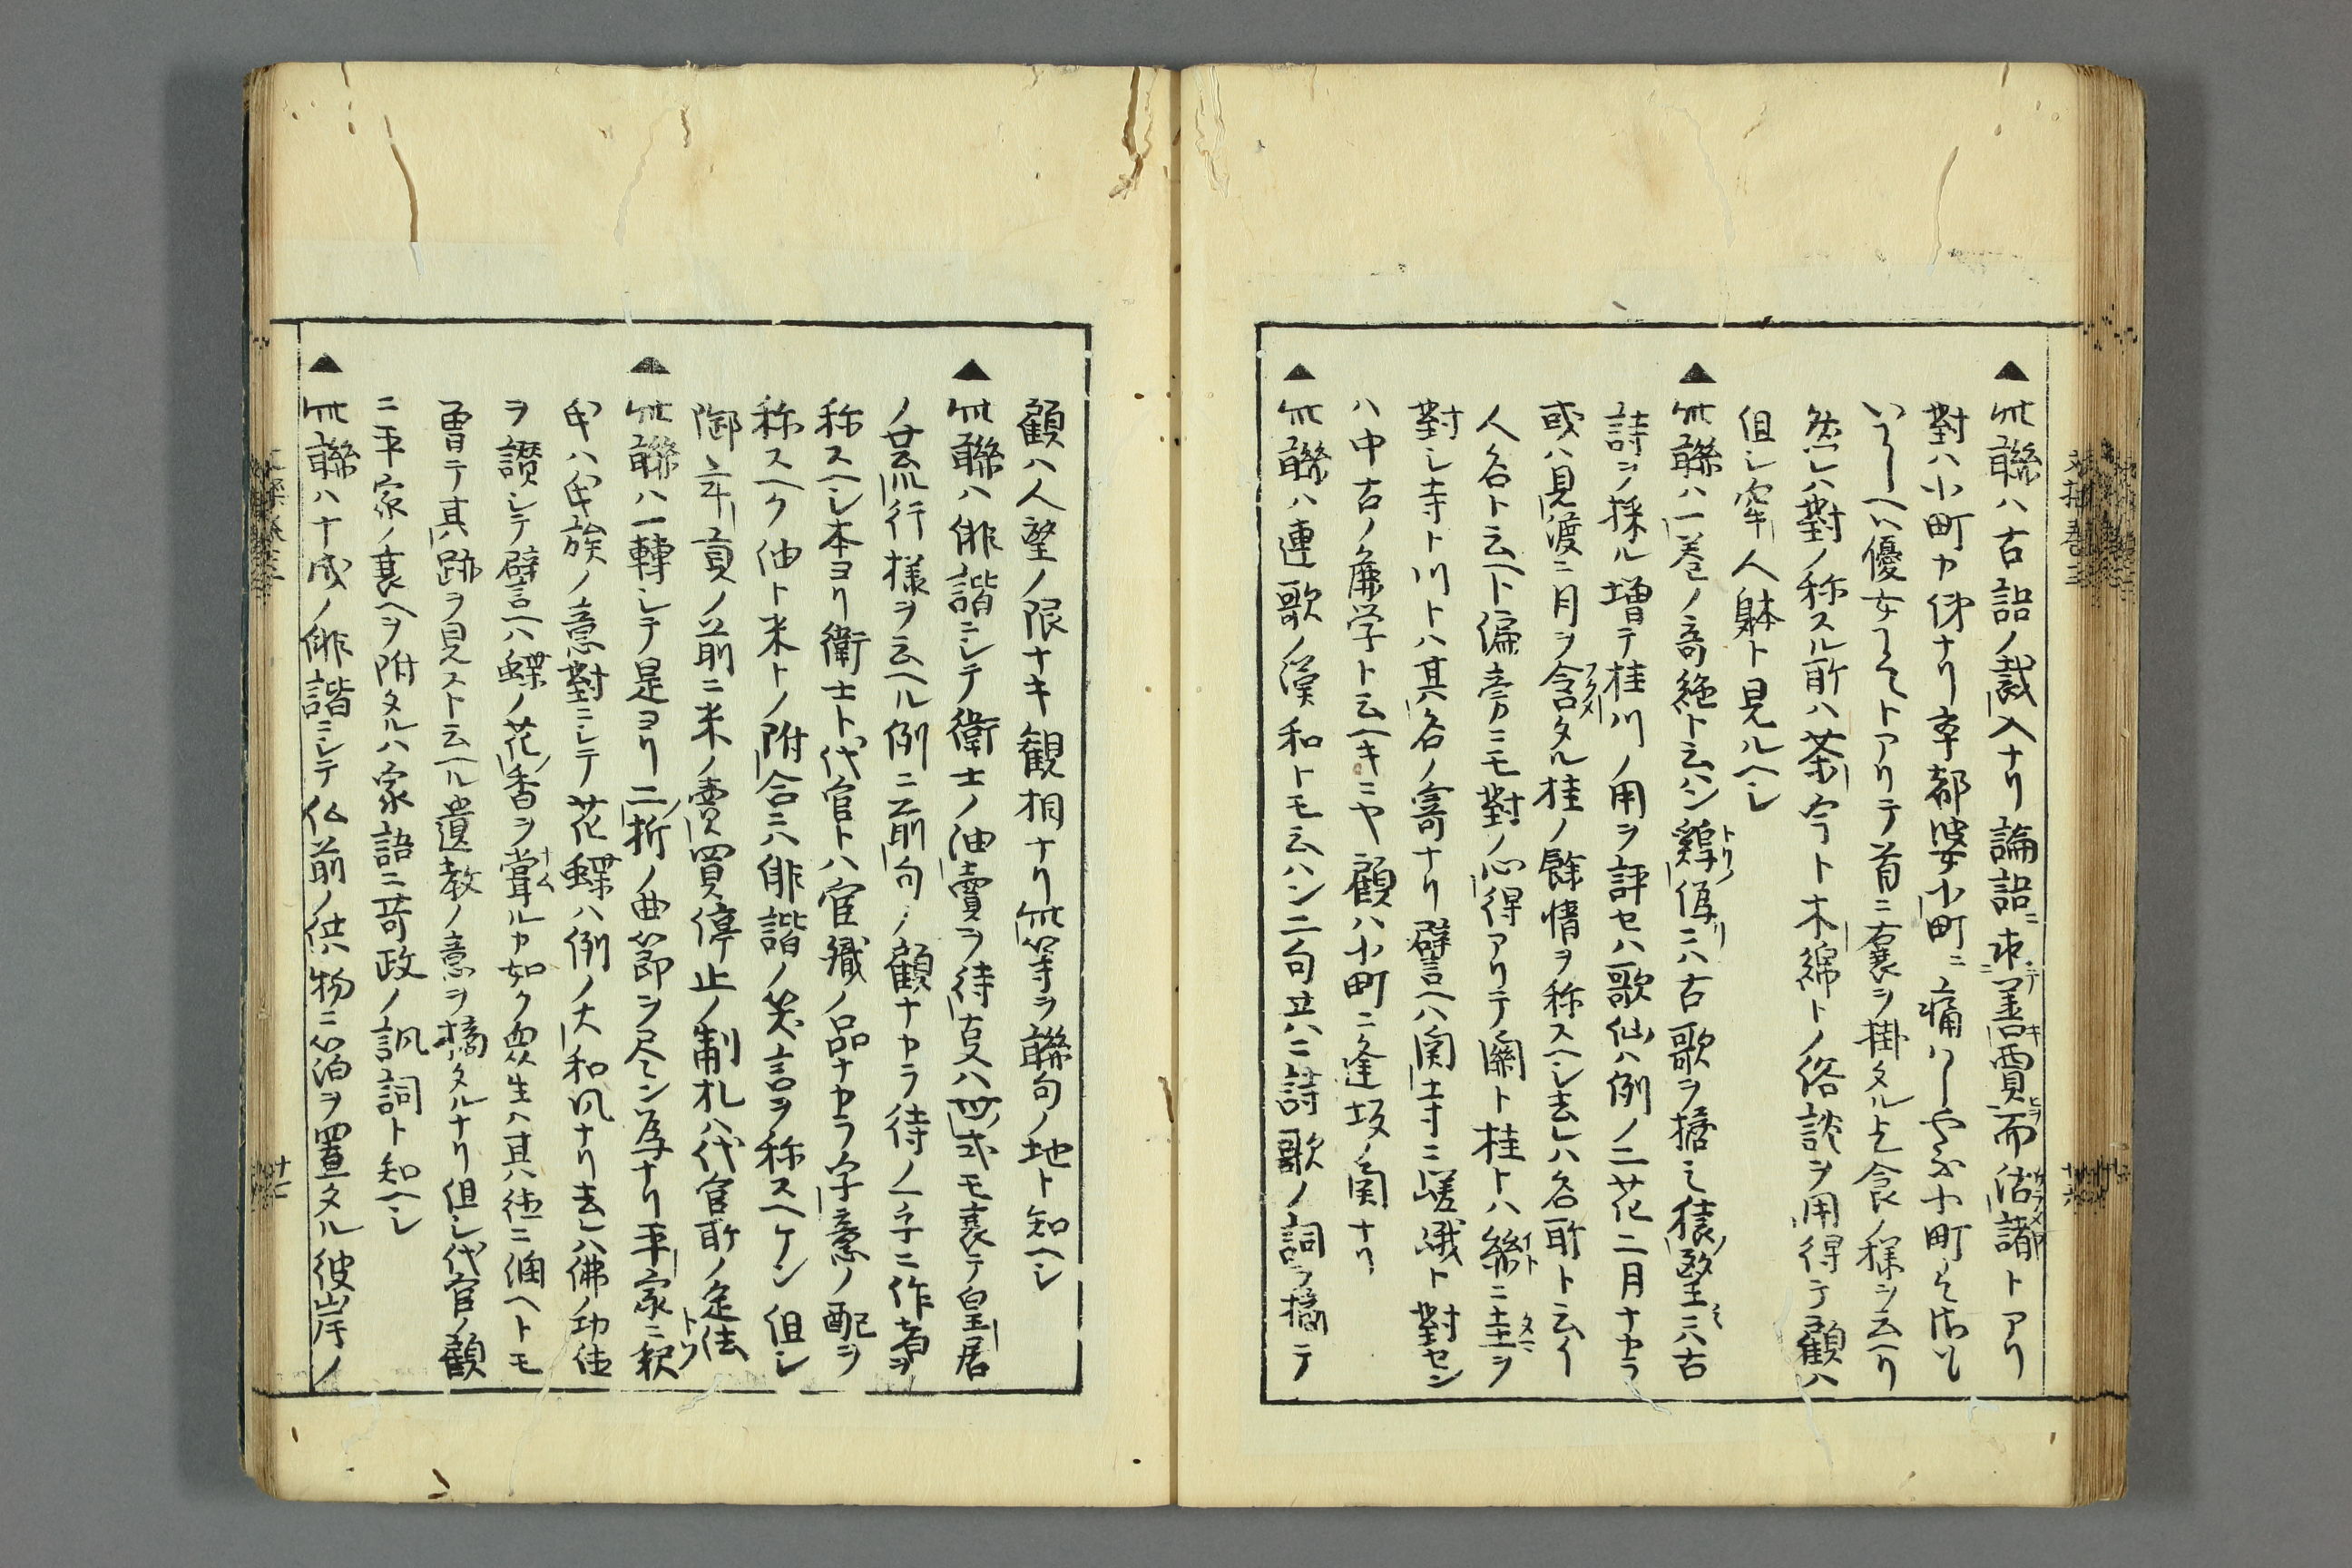 ▲此聯ハ古語ノ裁入ナリ論語ニ求善賈而沽諸トアリ
對ハ小町カ俤ナリ卒都婆小町ニ痛ハシヤナ小町ハ
優女ニテトアリテ首ニ裹ヲ掛タルト食ノ糅ヲ云ヘリ
然レハ對ノ称スル所ハ茶宇ト木綿トノ俗談ヲ用得テ顧ハ
但シ牢人躰ト見ルヘシ
▲此聯ハ一巻ノ奇絶ト云ハン鶏ノ偽ニハ古歌ヲ摭ヒ猿ノ堅ニハ古
詩ヲ採ル増テ桂川ノ用ヲ評セハ歌仙ハ例ノ二花二月ナカラ
或ハ見渡ニ月ヲ含タル桂ノ餘情ヲ称スヘシ去レハ名所ト云イ
人名ト云ヘト偏旁ニモ對ノ心得アリテ關ト桂トハ絲ニ圭ヲ
對シ寺ト川トハ其名ノ寄ナリ譬ヘハ関寺ニ嵯峨ト對セン
ハ中古ノ廉学ト云ヘキニヤ顧ハ小町ニ逢坂ノ関ナリ
▲此聯ハ連歌ノ漢和トモ云ハン二句共ニ詩歌ノ詞ヲ摘テ
顧ハ人望ノ限ナキ観相ナリ此等ヲ聯句ノ地ト知ヘシ
▲此聯ハ俳諧ニシテ衛士ノ油賣ヲ待夏ハ四式モ衰テ皇居
ノ荒流行様ヲ云ヘル例ニ前句ノ顧ナカラ待ノ一字ニ作者ヲ
称スヘシ本ヨリ衛士ト代官トハ官職ノ品ナカラ字意ノ配ヲ
称スヘク油ト米トノ附合ニハ俳諧ノ笑言ヲ称スヘケン但シ
御年貢ノ前ニ米ノ賣買停止ノ制札ハ代官所ノ定法
▲此聯ハ一轉シテ是ヨリ二ノ折ノ曲節ヲ尽セン為ナリ平家ニ釈
氏ハ氏族ノ意對ニシテ花蝶ハ例ノ大和風ナリ去レハ佛ノ功徳
ヲ讃シテ譬ヘハ蝶ノ花ノ香ヲ甞ルカ如ク衆生ハ其徳ニ誦ヘトモ
曽テ其跡ヲ見スト云ヘル遺教ノ意ヲ摘タルナリ但シ代官ノ顧
ニ平家ノ衰ヘヲ附タルハ家語ニ苛政ノ諷詞ト知ヘシ
▲此聯ハ十成ノ俳諧ニシテ仏前ノ供物ニ箔ヲ置タル彼岸ノ